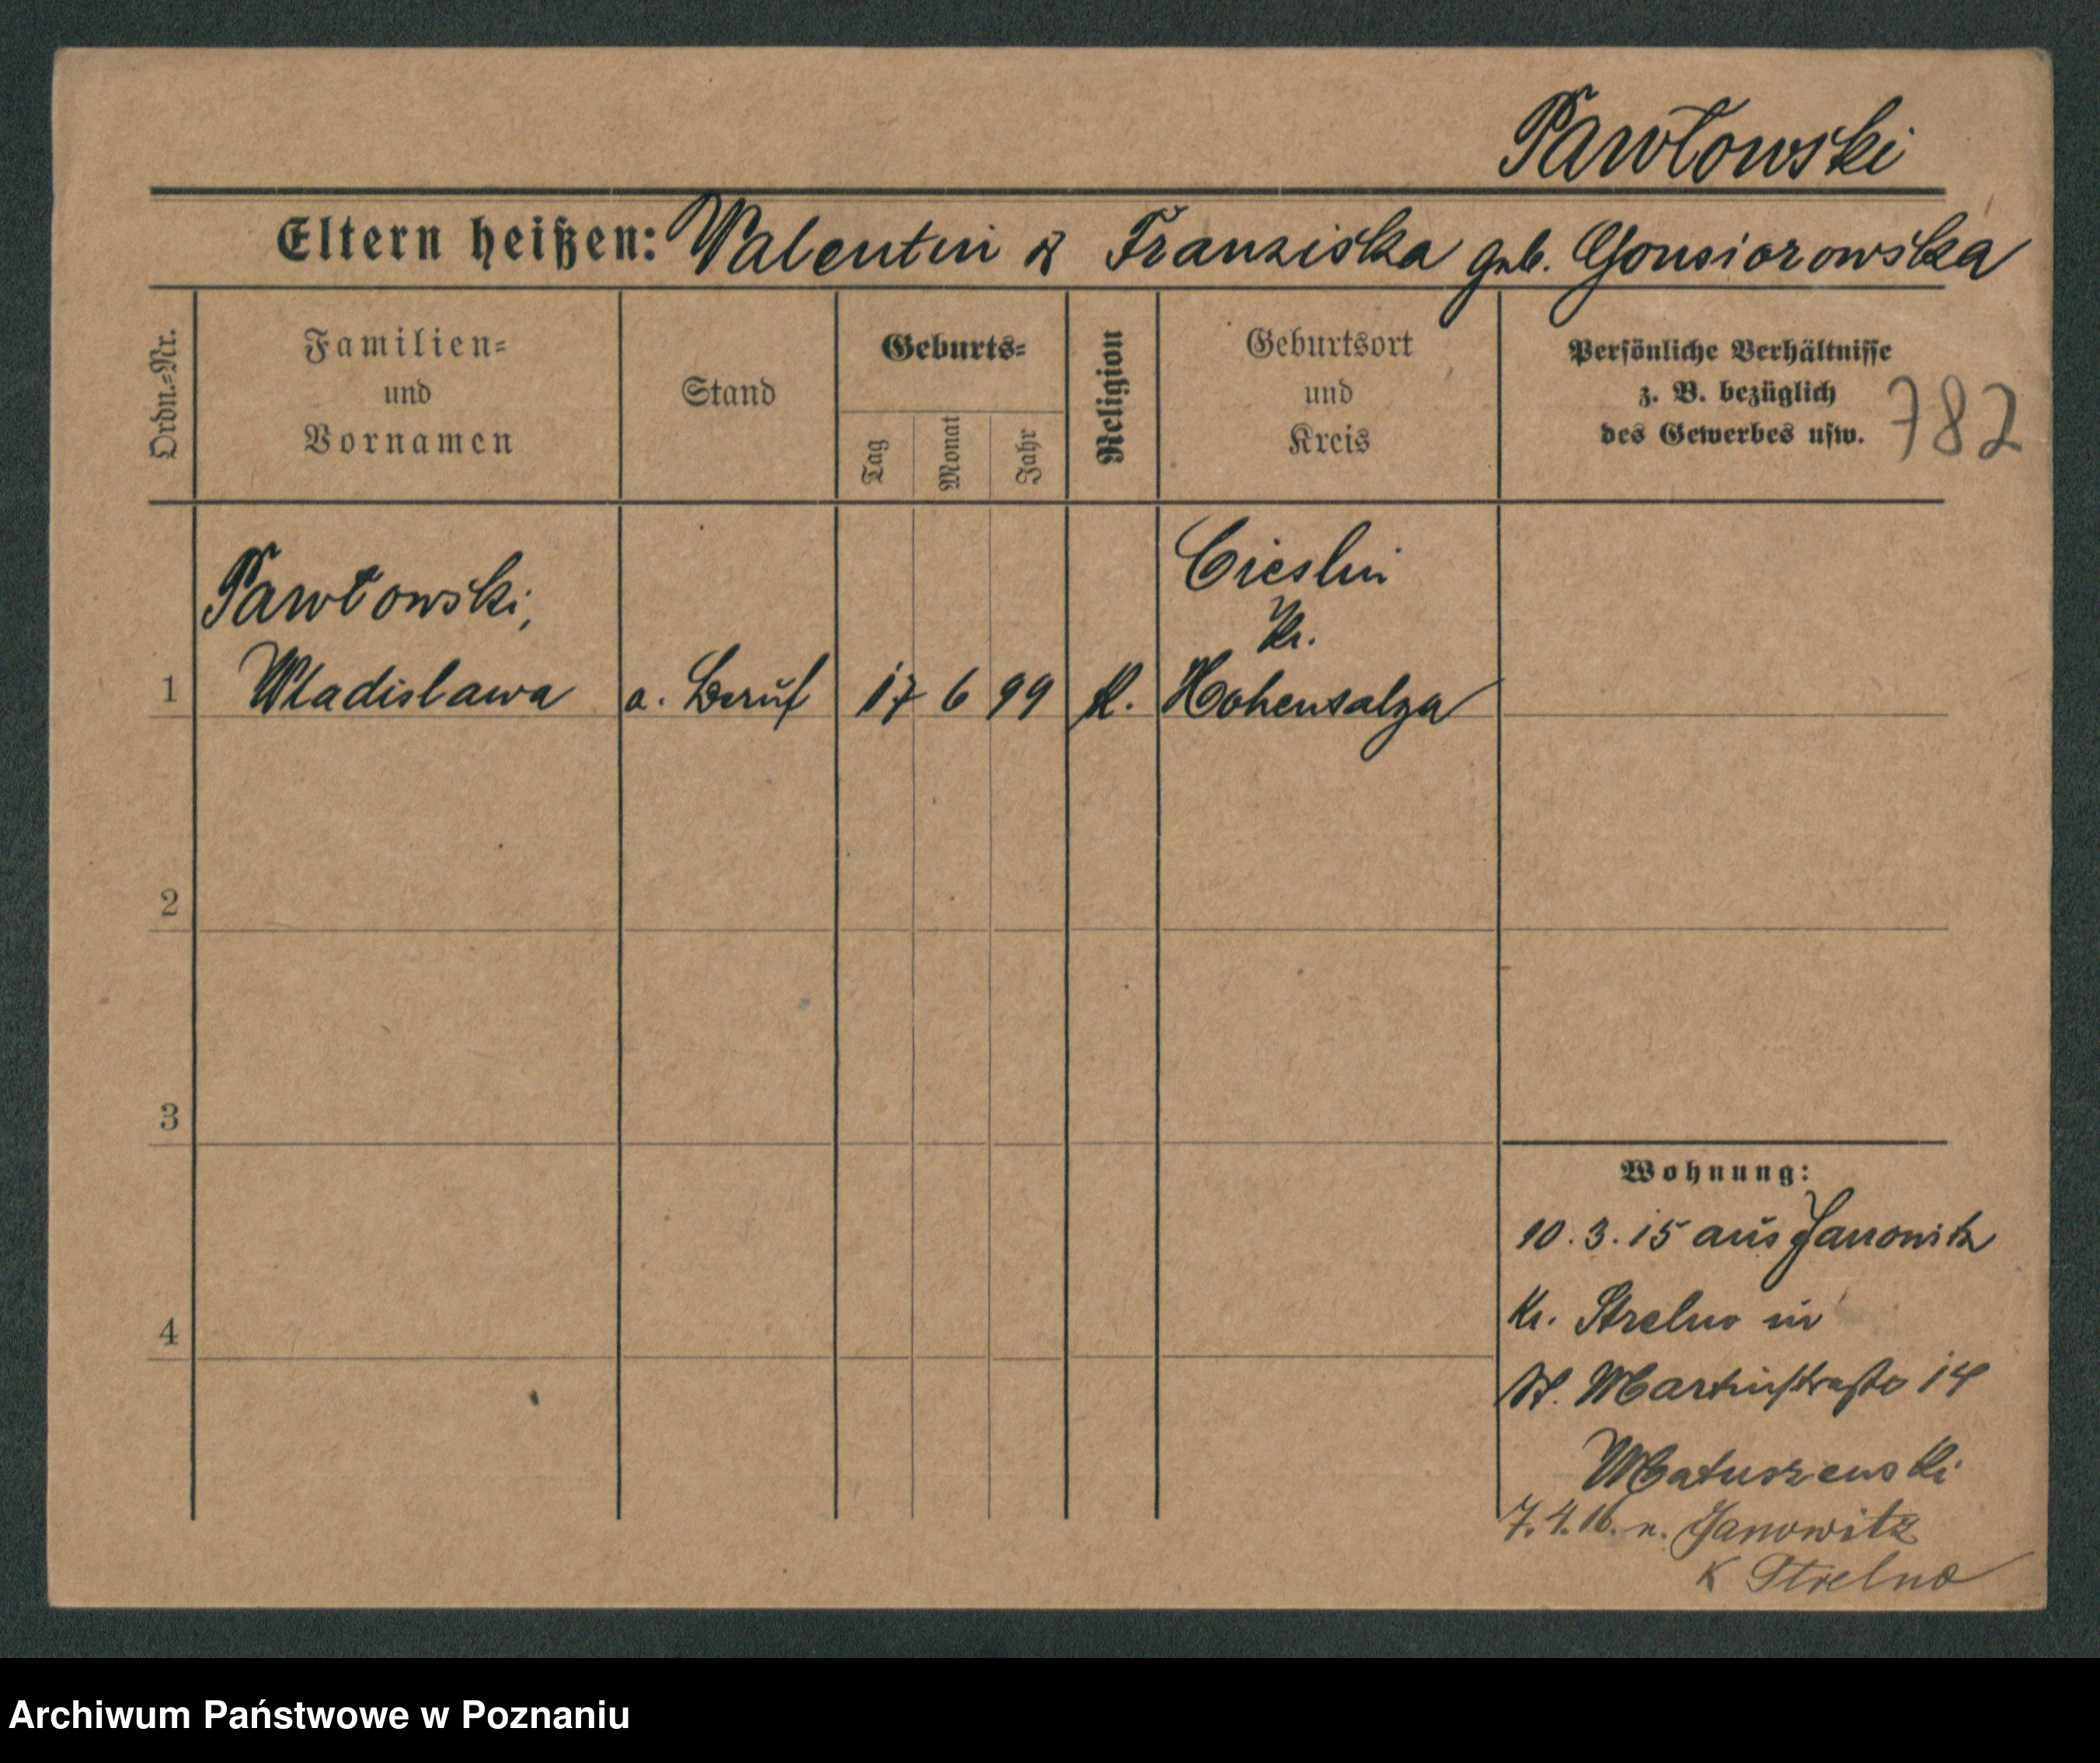 Pawłowski
Eltern heißen: Valentin & Franziska geb. Gonsiorowska
Ordn.=Nr.
Familien=
und
Vornamen
Stand
Geburts=
Tag
Monat
Jahr
Religion
Geburtsort
und
Kreis
Persönliche Verhältnisse
z. B. bezüglich
des Gewerbes usw.
782
Pawłowski,
Wladislawa
o. Beruf
17
6
99
k.
Cieslin
Kr.
Hohensalza
1
2
3
4
Wohnung:
10.3.15 aus Janowitz
Kr. Strelno in
St. Martinstraße 14
Matuszewski
7.4.16. n. Janowitz
K Strelno
Archiwum Państwowe w Poznaniu